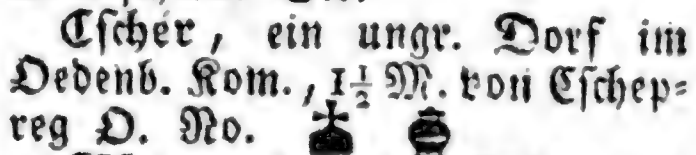 Cſchér, ein ungr. Dorf im
Oedenb. Kom., 1½ M. von Cſchep⸗
reg O. No.